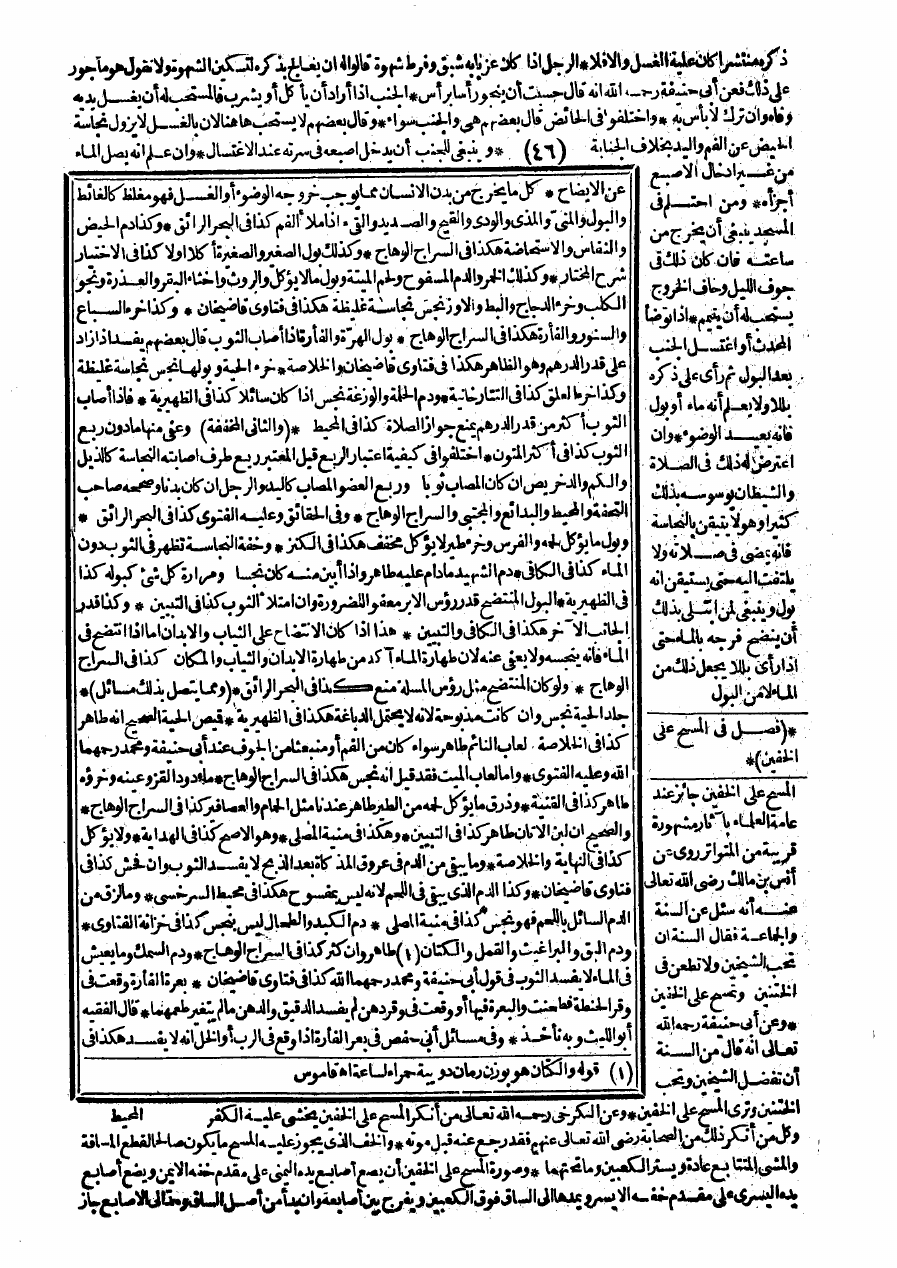 ذكره منتشرا كان عليه الغسل والافلا * الرجل اذا كان عزبا به شبق وفرط شهوة قالوا له ان يعالج بذكره لتسكين الشهوة ولا نقول هو مأجور
على ذلك فعن أبي حنيفة رحمه الله انه قال حسبه أن ينجو رأسا برأس * الجنب اذا أراد أن يأكل أو يشرب فالمستحب له أن يغسل يديه
وفاه وان ترك لا بأس به * واختلفوا في الحائض قال بعضهم هي والجنب سواء * وقال بعضهم لا يستحب ها هنا لان بالغسل لا يزول نجاسة
الحيض عن الفم واليد بخلاف الجنابة (٤٦) * وينبغي للجنب أن يدخل اصبعه في سرته عند الاغتسال * وان علم انه يصل الماء
من غير ادخال الاصبع
أجزأه * ومن احتلم في
المسجد ينبغي أن يخرج من
ساعته فان كان ذلك في
جوف الليل وخاف الخروج
يستحب له أن يتيمم * اذا توضأ
المحدث أو اغتسل الجنب
بعد البول ثم رأى على ذكره
بللا ولا يعلم أنه ماء أو بول
فانه يعيد الوضوء * وان
اعترض له ذلك في الصلاة
والشيطان يوسوسه بذلك
كثيرا وهو لا يتيقن بالنجاسة
فانه يمضي في صلاته ولا
يلتفت اليه حتى يستيقن انه
بول وينبغي لمن ابتلى بذلك
أن ينضح فرجه بالماء حتى
اذا رأى بللا يجعل ذلك من
الماء لا من البول
*(فصل في المسح على
الخفين)*
المسح على الخفين جائز عند
عامة العلماء بآثار مشهورة
قريبة من المتواتر روى عن
أنس بن مالك رضي الله تعالى
عنه أنه سئل عن السنة
والجماعة فقال السنة ان
تحب الشيخين ولا تطعن في
الختنين وتمسح على الخفين
* وعن أبي حنيفة رحمه الله
تعالى انه قال من السنة
أن تفضل الشيخين وتحب
الختنين وترى المسح على الخفين * وعن الكرخي رحمه الله تعالى من أنكر المسح على الخفين يخشى عليه الكفر
وكل من أنكر ذلك من الصحابة رضي الله تعالى عنهم فقد رجع عنه قبل موته * والخف الذي يجوز عليه المسح ما يكون صالحا لقطع المسافة
والمشي المتتابع عادة ويستر الكعبين وما تحتهما * وصورة المسح على الخفين أن يضع أصابع يده اليمنى على مقدم خفه الايمن ويضع أصابع
يده اليسرى على مقدم خفه الايسر ويمدها الى الساق فوق الكعبين ويفرج بين أصابعه وان بدأ من أصل الساق ومد الى الاصابع جاز
عن الايضاح * كل ما يخرج من بدن الانسان مما يوجب خروجه الوضوء أو الغسل فهو مغلظ كالغائط
والبول والمني والمذي والودي والقيح والصديد والقيء اذا ملأ الفم كذا في البحر الرائق * وكذا دم الحيض
والنفاس والاستحاضة هكذا في السراج الوهاج * وكذلك بول الصغير والصغيرة أكلا اولا كذا في الاختيار
شرح المختار * وكذلك الخمر والدم المسفوح ولحم الميتة وبول مالا يؤكل والروث واخثاء البقر والعذرة ونجو
الكلب وخرء الدجاج والبط والاوز نجس نجاسة غليظة هكذا في فتاوى قاضيخان * وكذا خرء السباع
والسنور والفأرة هكذا في السراج الوهاج * بول الهرة والفأرة اذا أصاب الثوب قال بعضهم يفسد اذا زاد
على قدر الدرهم وهو الظاهر هكذا في فتاوى قاضيخان والخلاصة * خرء الحية وبولها نجس نجاسة غليظة
وكذا خرء العلق كذا في التتارخانية * ودم الحلمة والوزغة نجس اذا كان سائلا كذا في الظهيرية * فاذا أصاب
الثوب أكثر من قدر الدرهم يمنع جواز الصلاة كذا في المحيط * (والثاني المخففة) وعفي منها مادون ربع
الثوب كذا في أكثر المتون * اختلفوا في كيفية اعتبار الربع قيل المعتبر ربع طرف اصابته النجاسة كالذيل
والكم والدخريص ان كان المصاب ثوبا وربع العضو المصاب كاليد والرجل ان كان بدنا وصححه صاحب
التحفة والمحيط والبدائع والمجتبى والسراج الوهاج * وفي الحقائق وعليه الفتوى كذا في البحر الرائق *
وبول ما يؤكل لحمه والفرس وخرء طير لا يؤكل مخفف هكذا في الكنز * وخفة النجاسة تظهر في الثوب دون
الماء كذا في الكافي * دم الشهيد مادام عليه طاهر واذا أبين منه كان نجسا ومرارة كل شيء كبوله كذا
في الظهيرية * البول المنتضح قدر رؤس الابر معفو للضرورة وان امتلأ الثوب كذا في التبيين * وكذا قدر
الجانب الآخر هكذا في الكافي والتبيين * هذا اذا كان الانتضاح على الثياب والابدان اما اذا انتضح في
الماء فانه ينجسه ولا يعفى عنه لان طهارة الماء آكد من طهارة الابدان والثياب والمكان كذا في السراج
الوهاج * ولو كان المنتضح مثل رؤس المسلة منع كذا في البحر الرائق * (ومما يتصل بذلك مسائل) *
جلد الحية نجس وان كانت مذبوحة لانه لا يحتمل الدباغة هكذا في الظهيرية * قميص الحية الصحيح انه طاهر
كذا في الخلاصة لعاب النائم طاهر سواء كان من الفم أو منبعثا من الجوف عند أبي حنيفة ومحمد رحمهما
الله وعليه الفتوى * واما لعاب الميت فقد قيل انه نجس هكذا في السراج الوهاج * ماء دود القز وعينه وخرؤه
طاهر كذا في القنية * وذرق ما يؤكل لحمه من الطير طاهر عندنا مثل الحمام والعصافير كذا في السراج الوهاج *
والصحيح ان لبن الاتان طاهر كذا في التبيين * وهكذا في منية المصلي * وهو الاصح كذا في الهداية * ولا يؤكل
كذا في النهاية والخلاصة * وما يبقى من الدم في عروق المذكاة بعد الذبح لا يفسد الثوب وان فحش كذا في
فتاوى قاضيخان * وكذا الدم الذي يبقى في اللحم لانه ليس بمسفوح هكذا في محيط السرخسي * وما لزق من
الدم السائل باللحم فهو نجس كذا في منية المصلي * دم الكبد والطحال ليس بنجس كذا في خزانة الفتاوى *
ودم البق والبراغيث والقمل والكتان (١) طاهر وان كثر كذا في السراج الوهاج * ودم السمك وما يعيش
في الماء لا يفسد الثوب في قول أبي حنيفة ومحمد رحمهما الله كذا في فتاوى قاضيخان * بعرة الفأرة وقعت في
وقر الحنطة فطحنت والبعرة فيها أو وقعت في وقر دهن لم يفسد الدقيق والدهن مالم يتغير طعمهما * قال الفقيه
أبو الليث وبه نأخذ * وفي مسائل أبي حفص في بعر الفأرة اذا وقع في الرب أو الخل انه لا يفسد هكذا في
المحيط
(١) قوله والكتان هو بوزن رمان دويبة حمراء لساعة اه قاموس